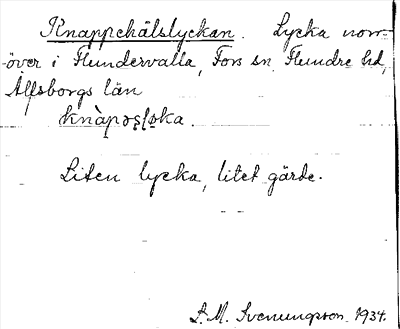 Knappekälslyckan. Lycka norr-
över i Flundervalla, Fors sn, Flundre hd,
Älfsborgs län
knàpəʂḷøka.
Liten lycka, litet gärde.
S. M. Svenungsson. 1934.